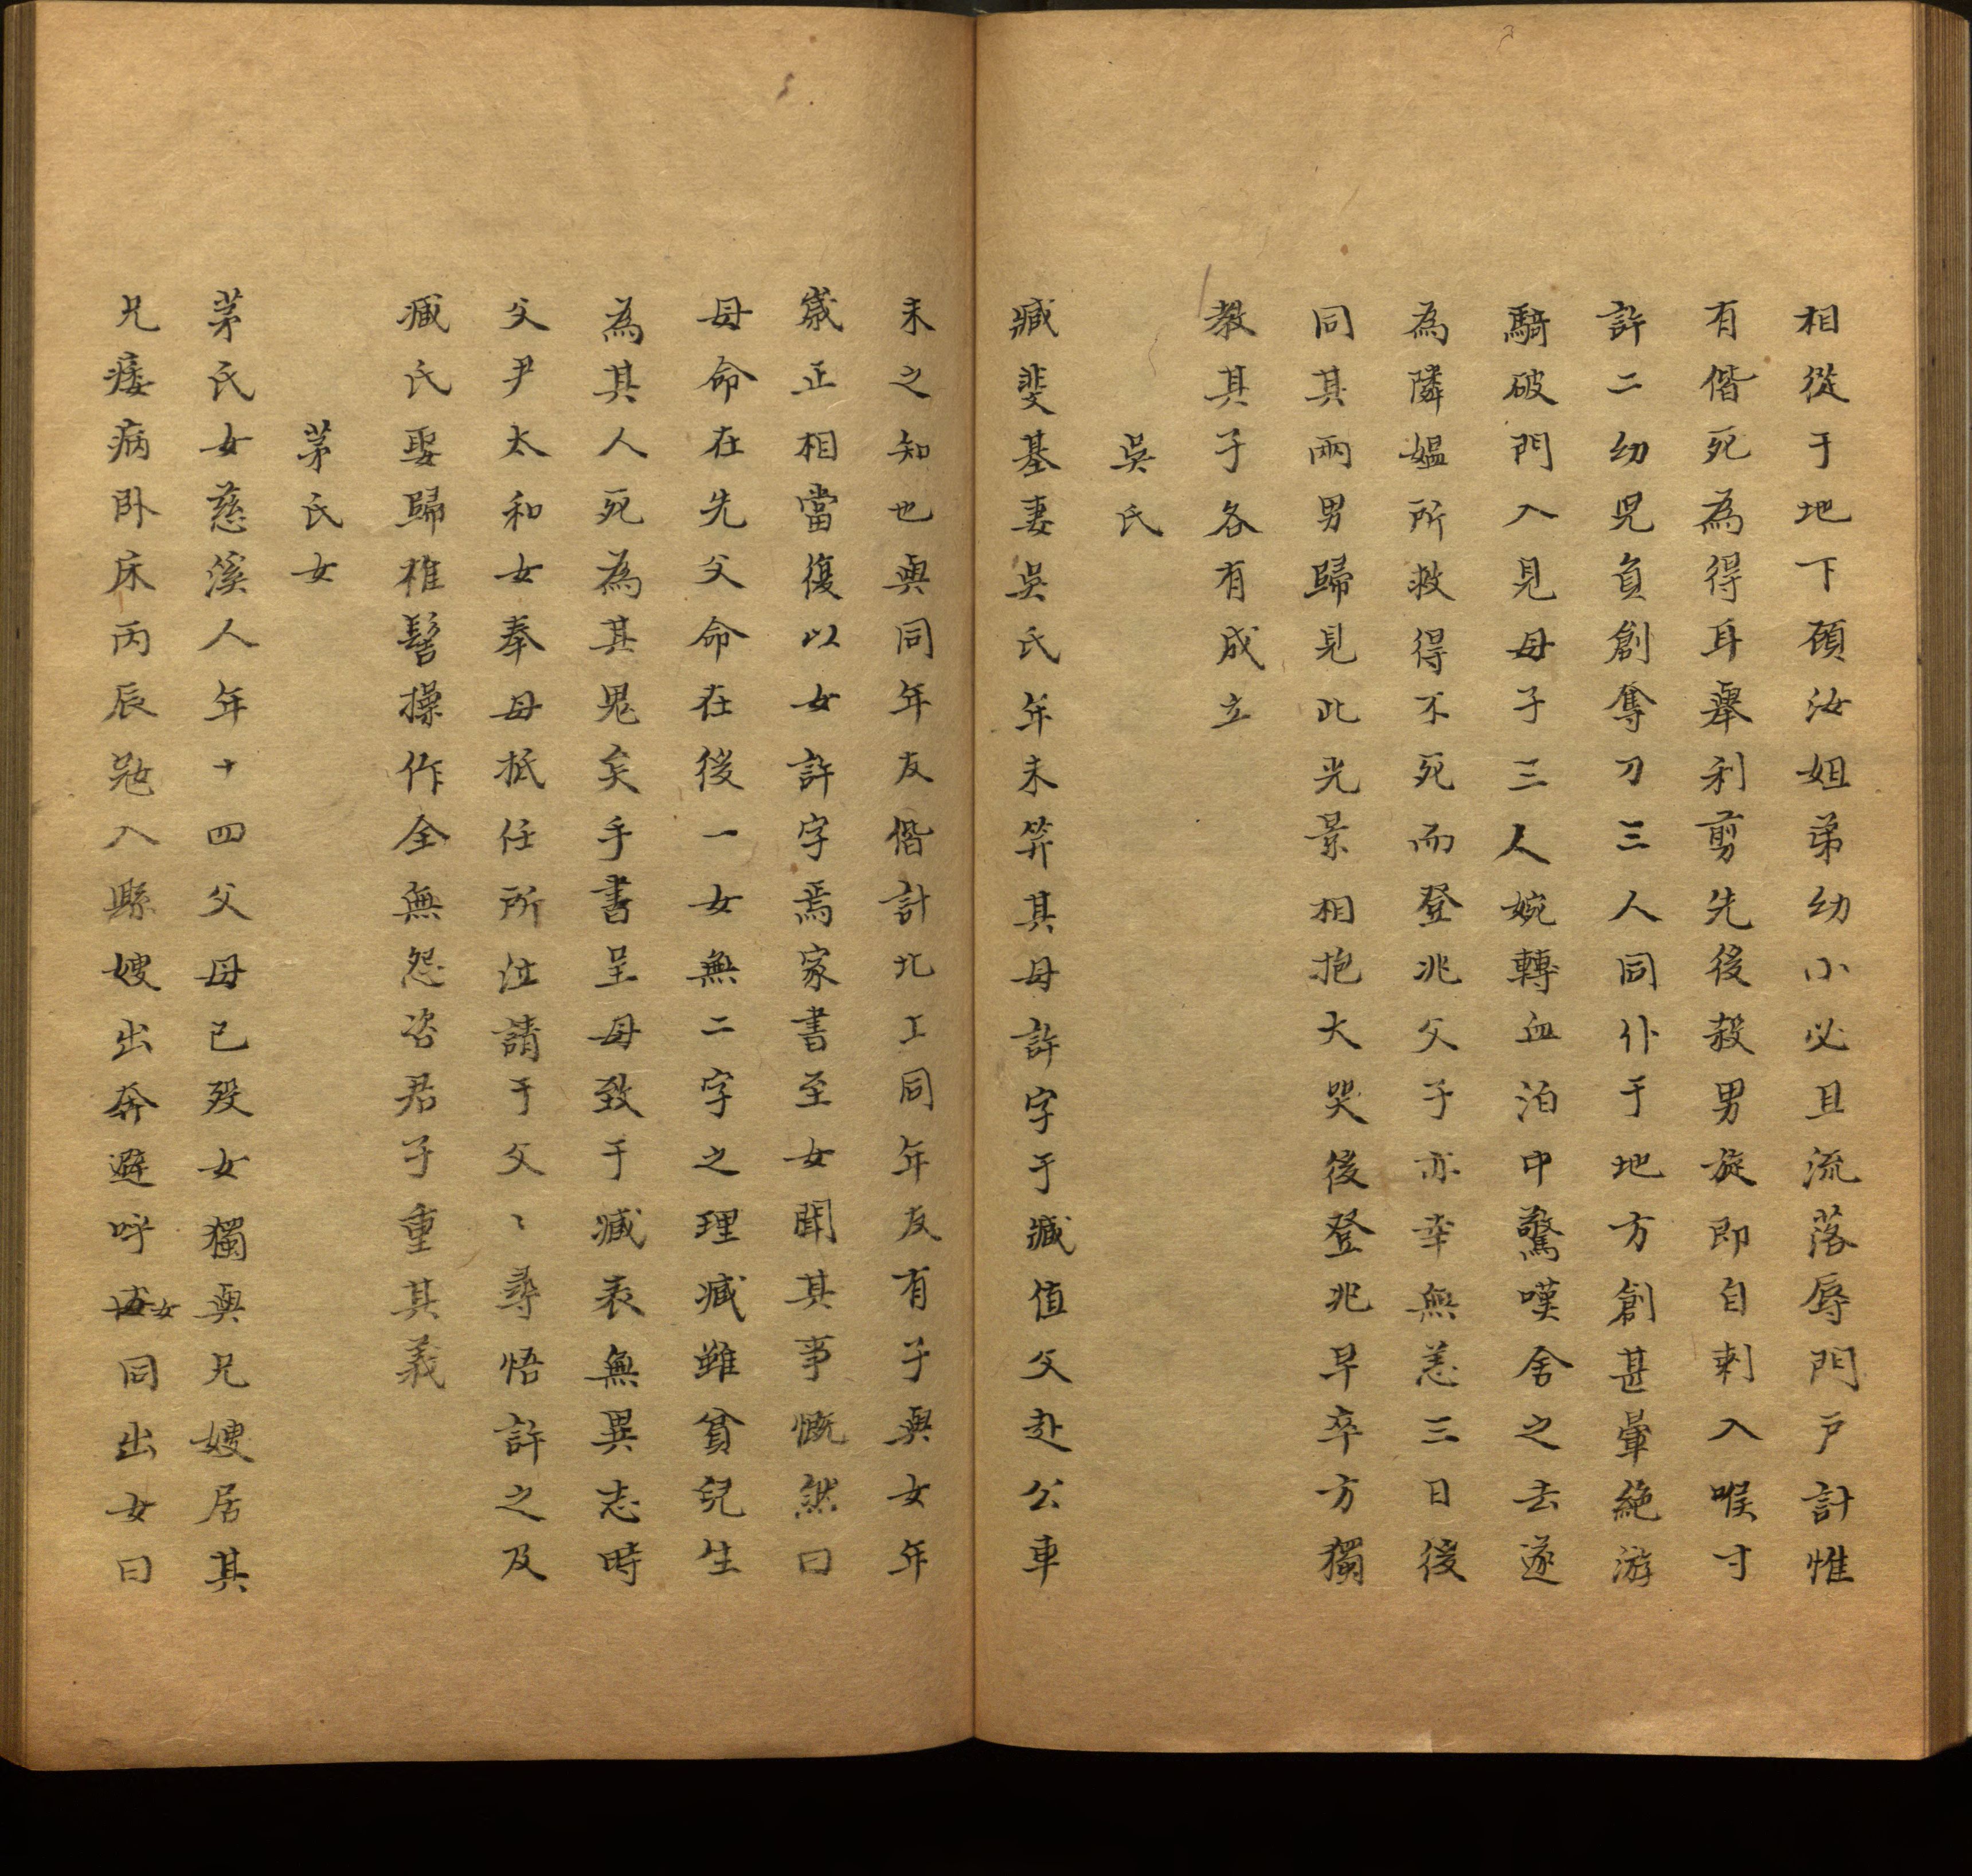 相從于地下顧汝姐弟幼小必且流落辱門戶計惟
有偕死為得耳舉利剪先後殺男旋即自刺入喉寸
許二幼兒負創奪刀三人同仆于地方創甚暈絕游
騎破門入見母子三人婉轉血泊中驚嘆舍之去遂
為隣媼所救得不死而登兆父子亦幸無恙三日後
同其兩男歸見此光景相抱大哭後登兆早卒方獨
教其子各有成立
吳氏
臧斐基妻吳氏年未笄其母許字于臧值父赴公車
未之知也與同年友偕計北上同年友有子與女年
歲正相當復以女許字焉家書至女聞其事慨然曰
母命在先父命在後一女無二字之理臧雖貧兒生
為其人死為其鬼矣手書呈母致于臧表無異志時
父尹太和女奉母抵任所泣請于父〻尋悟許之及
臧氏娶歸椎髻操作全無怨咨君子重其義
茅氏女
茅氏女慈溪人年十四父母已歿女獨與兄嫂居其
兄痿病卧床丙辰冦入縣嫂出奔避呼女同出女曰